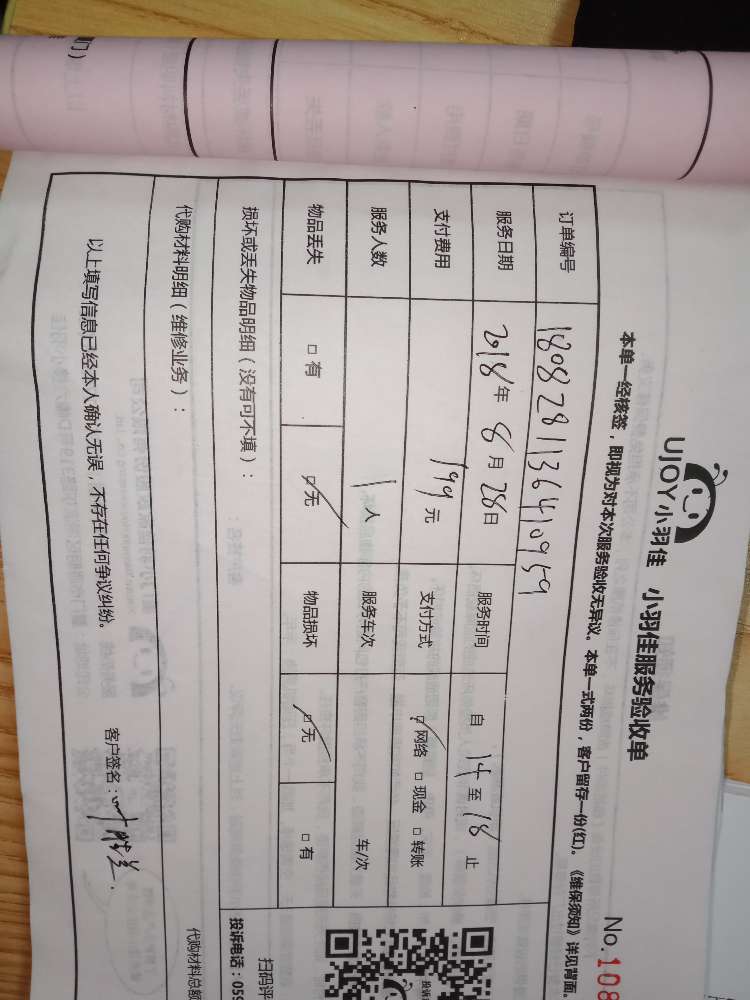 UJOY小羽佳 小羽佳服务验收单
No.108
本单一经核签，即视为对本次服务验收无异议。本单一式两份，客户留存一份(红)。《维保须知》详见背面。
订单编号 1808281136410959
服务日期 2018年 8月 28日 服务时间 自 14 至 18 止
支付费用 199元 支付方式 ☑网络 □现金 □转账
服务人数 1人 服务车次 车/次
物品丢失 □有 ☑无 物品损坏 ☑无 □有
损坏或丢失物品明细（没有可不填）：
扫码评
投诉电话：059
代购材料明细（维修业务）：
代购材料总额
以上填写信息已经本人确认无误，不存在任何争议纠纷。
客户签名：